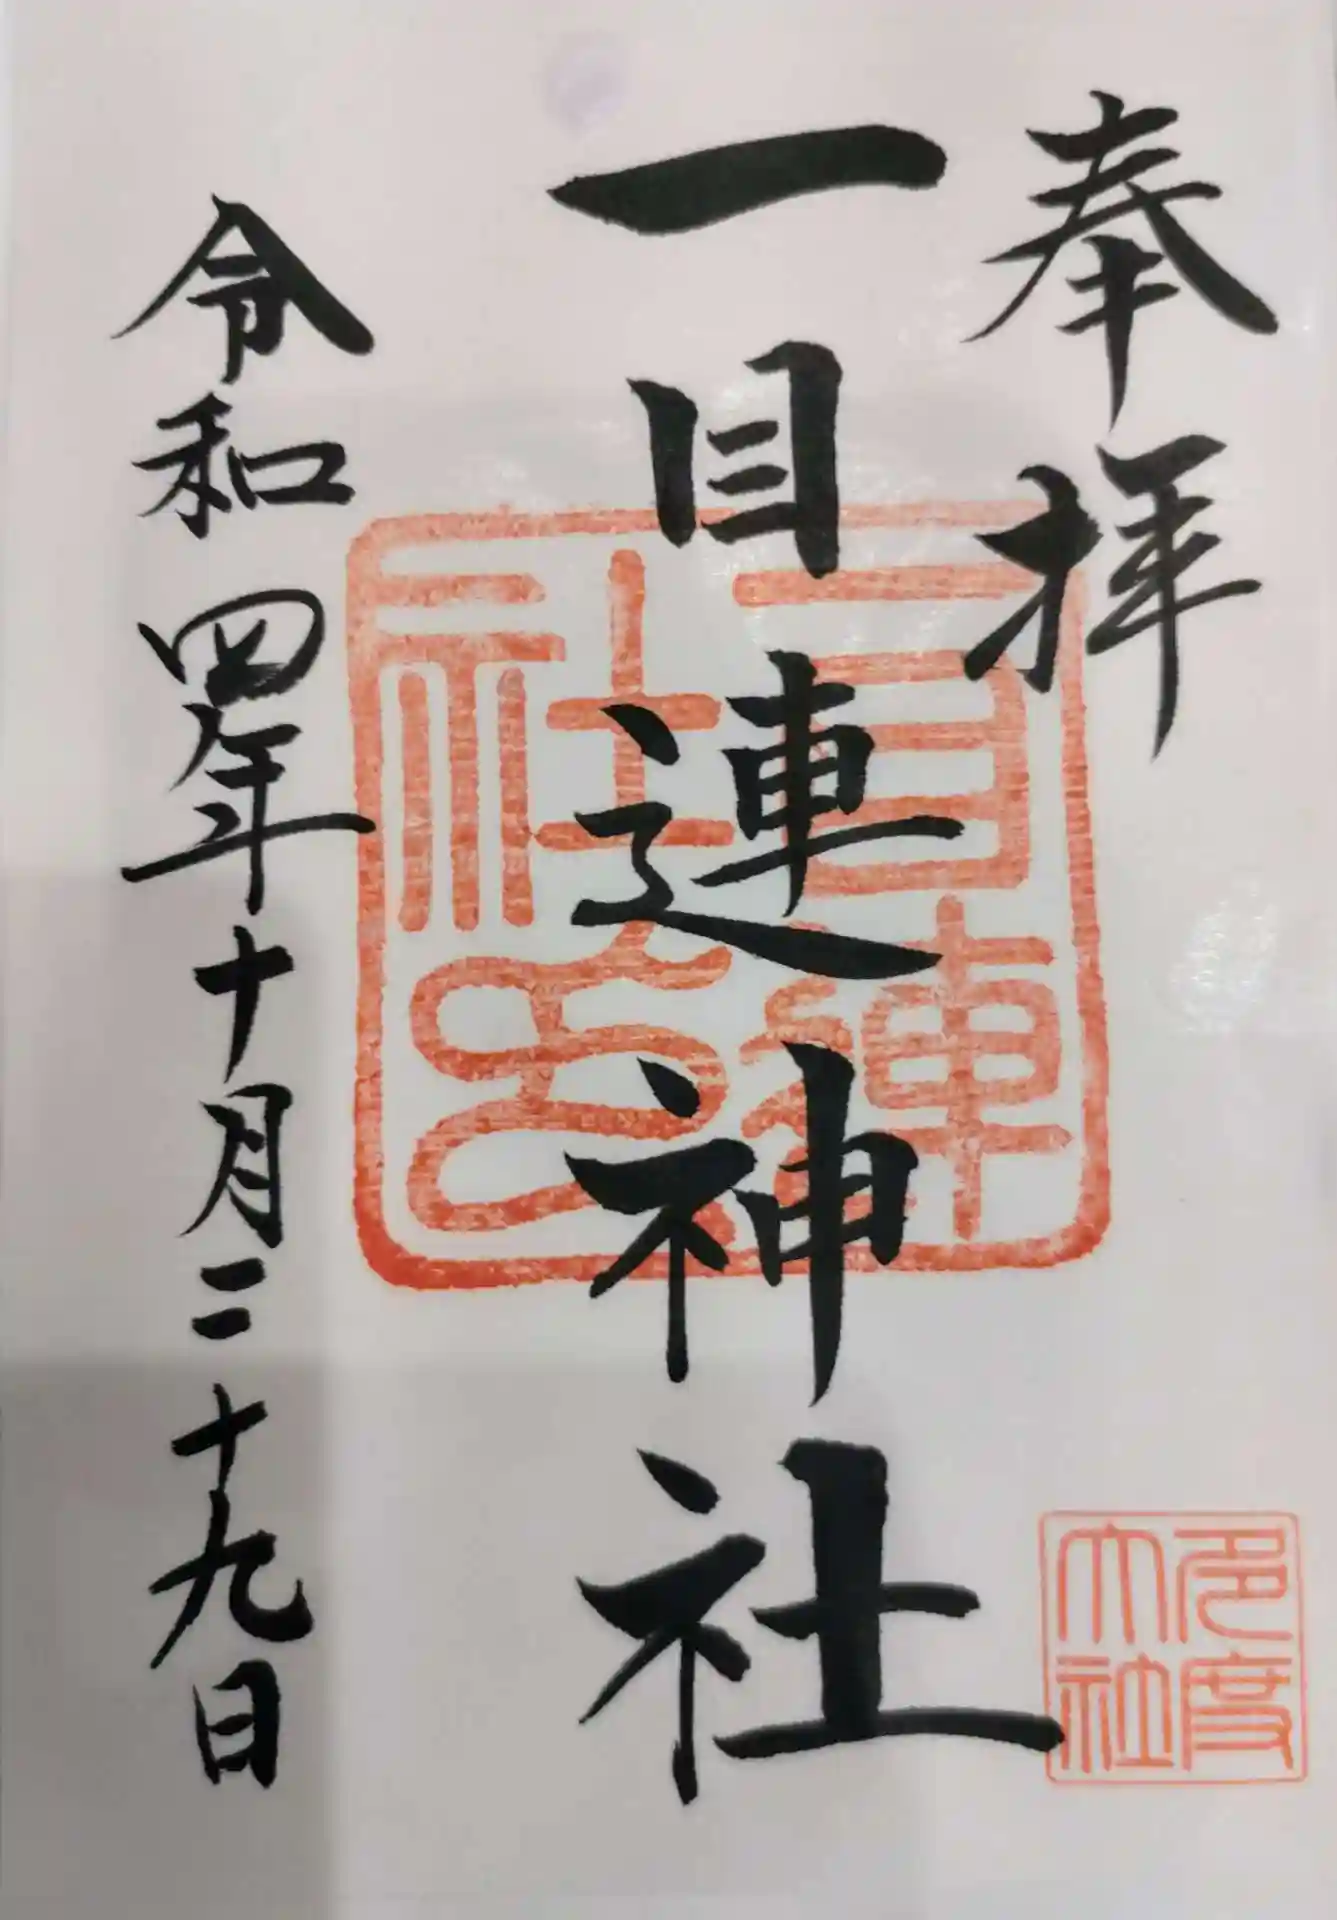 奉拝
一目連神社
令和四年十月二十九日
一目連
社之
多度
大社